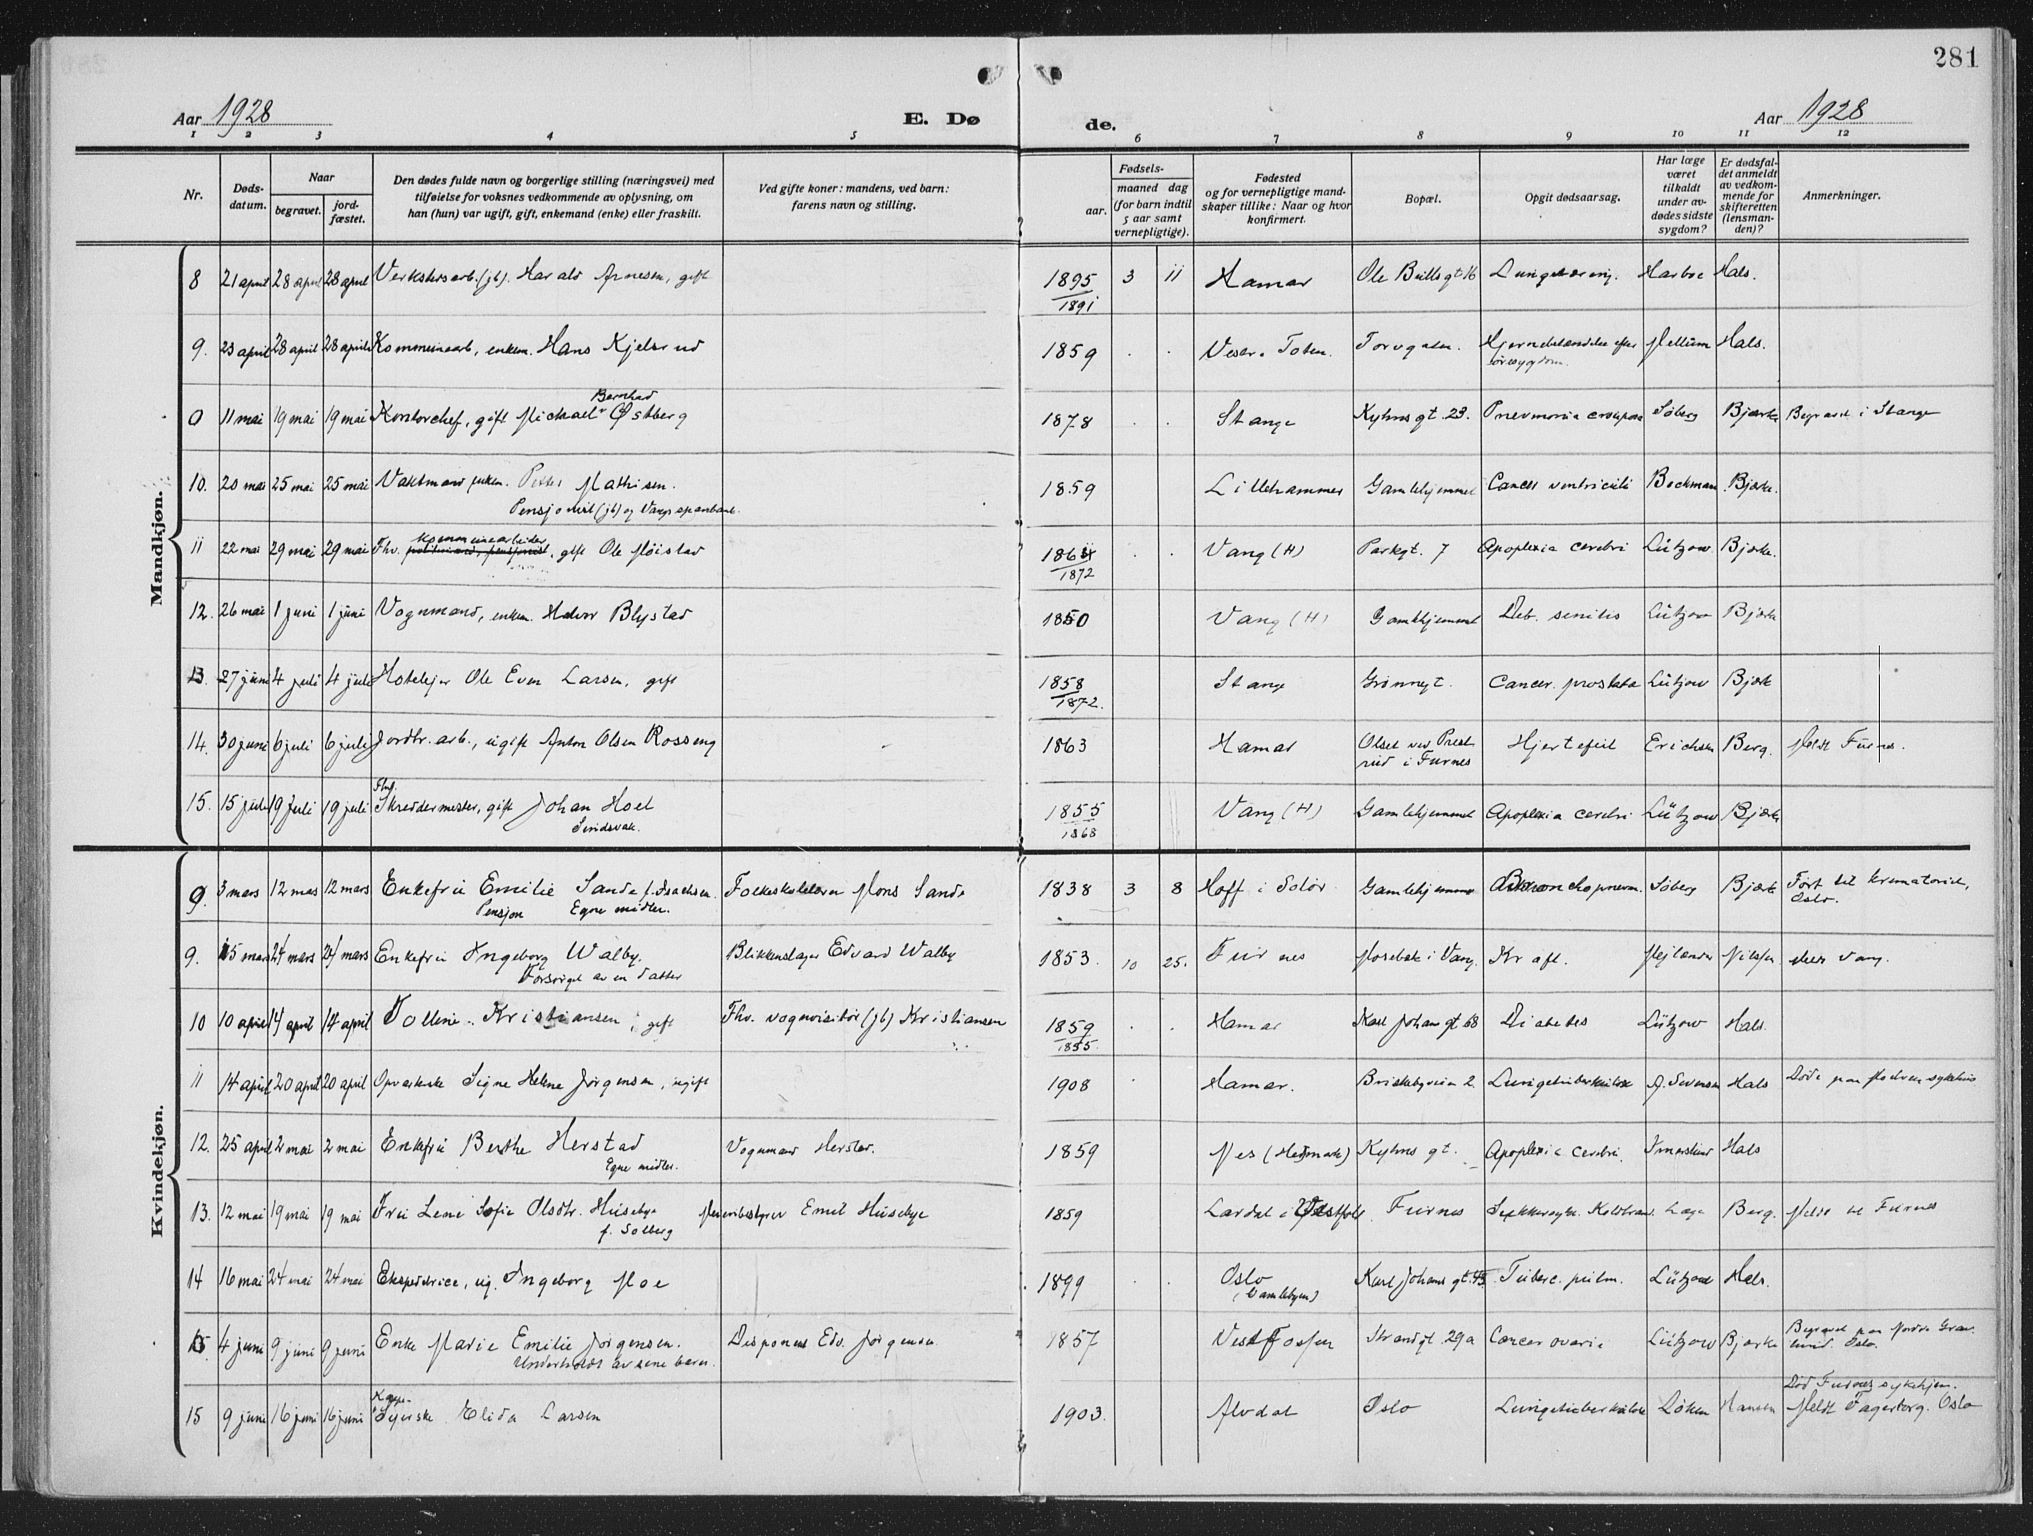 281
Aar 1928
E. Dø
de.
Aar 1928
1 2 3 4 5 6 7 8 9 10 11 12
Nr.
Døds-
datum.
Naar
begravet.
jord-
fæstet.
Den dødes fulde navn og borgerlige stilling (næringsvei) med
tilføielse for voksnes vedkommende av oplysning, om
han (hun) var ugift, gift, enkemand (enke) eller fraskilt.
Ved gifte koner: mandens, ved barn:
farens navn og stilling.
Fødsels-
aar.
maaned dag
(for barn indtil
5 aar samt
vernepligtige).
Fødested
og for vernepligtige mand-
skaper tillike: Naar og hvor
konfirmert.
Bopæl.
Opgit dødsaarsag.
Har læge
været
tilkaldt
under av-
dødes sidste
sygdom?
Er dødsfal-
det anmeldt
av vedkom-
mende for
skifteretten
(lensman-
den)?
Anmerkninger.
Mandkjøn.
8 21 april 28 april 28 april Verkstedsarb. (jb). Harald Arnesen, gift 1895 3 11 Hamar Ole Bulls gt 16 Lungetæring. Harboe Hals.
1891
9. 23 april 28 april 28 april Kommunearb, enkem. Hans Kjelsrud 1859 . . Vestre Toten. Torvgaten. Hjernebetændelse efter Mellum Hals.
øresygdom.
Bernhard
0 11 mai 19 mai 19 mai Kontorchef, gift Michael Østberg 1878 . . Stange Kyhns gt. 23. Pneumonia crouposa Søberg Bjærke Begravet i Stange
10. 20 mai 25 mai 25 mai Vaktmand, enkem. Petter Mathisen. 1859 Lillehammer Gamlehjemmet Cancer ventriculi Bockman. Bjærke.
Pensjonist (jb) og Vangs sparebank.
kommunearbeider
11 22 mai 29 mai 29 mai Fhv. politimand, pensjonist, gift Ole Møistad 1864 . . Vang (H) Parkgt. 7 Apoplexia cerebri Lützow. Bjærke.
1872
12. 26 mai 1 juni 1 juni Vognmand, enkem. Halvor Blystad 1850 Vang (H) Gamlehjemmet Deb. senilis Lützow Bjærke
13. 27 juni 4 juli 4 juli Hoteleier Ole Even Larsen, gift 1858 Stange Grønnegt. Cancer. prostata Lützow Bjærke
1872.
14. 30 juni 6 juli 6 juli Jordbr. arb., ugift Anton Olsen Rosseng 1863 Hamar Olset ved Prest- Hjertefeil Erichsen Berg. Meldt Furnes.
rud i Furnes
Fhv.
15. 15 juli 19 juli 19 juli Skreddermester, gift Johan Hoel 1855 Vang (H) Gamlehjemmet Apoplexia cerebri Lützow Bjærke
1868
Kvindekjøn.
9. 3 mars 12 mars 12 mars Enkefru Emilie Sande f. Isachsen. Folkeskolelærer Mons Sande 1838 3 8 Hoff i Solør. Gamlehjemmet Bronchopneum. Søberg Bjærke Ført til krematoriet,
Pensjon Egne midler. Oslo.
9. 15 mars 24 mars 24 mars Enkefru Ingeborg Walby. Blikkenslager Edvard Walby 1853. 10 25. Furnes Mosebæk i Vang. Kræft. Mejlænder Nilsen Meldt Vang.
Forsørget av en datter
10 10 april 14 april 14 april Tolline Kristiansen, gift Fhv. vognvisitør (jb) Kristiansen 1859 . . Hamar Karl Johans gt 68 Diabetes Lützow Hals.
1855.
11 14 april 20 april 20 april Opvarterske Signe Helene Jørgensen, ugift 1908 Hamar. Briskebyveien 2. Lungetuberkulose A. Svensen Hals Døde paa Modum sykehus
12. 25 april 2 mai 2 mai Enkefru Berthe Herstad Vognmand Herstad. 1859 Nes (Hedmark) Kyhns gt. Apoplexia cerebri. Hals
Egne midler.
13. 12 mai 19 mai 19 mai Fru Lene Sofie Olsdtr. Huseby Meieribestyrer Emil Huseby 1859 Lardal i Vestfold. Furnes Sukkersyke. Koldbrand. Lage Berg. Meldt til Furnes
f. Solberg
14 16 mai 24 mai 24 mai Ekspeditrice, ug. Ingeborg Moe 1899 Oslo Karl Johans gt. 43. Tuberc. pulm. Lützow Hals.
(Gamlebyen)
15. 4 juni 9 juni 9 juni Enke Marie Emilie Jørgensen. Disponent Edv. Jørgensen 1857 Vestfossen Strandgt. 29a Cancer ovarie Lützow Bjærke Begravet paa Nordre Grav-
Underholdt av sine barn. lund. Oslo.
Kaape- Død Furnes sykehjem.
15 9 juni 16 juni 16 juni Syerske Elida Larsen 1903. Alvdal Oslo Lungetuberkulose Løken Hansen Meldt Fagerborg. Oslo